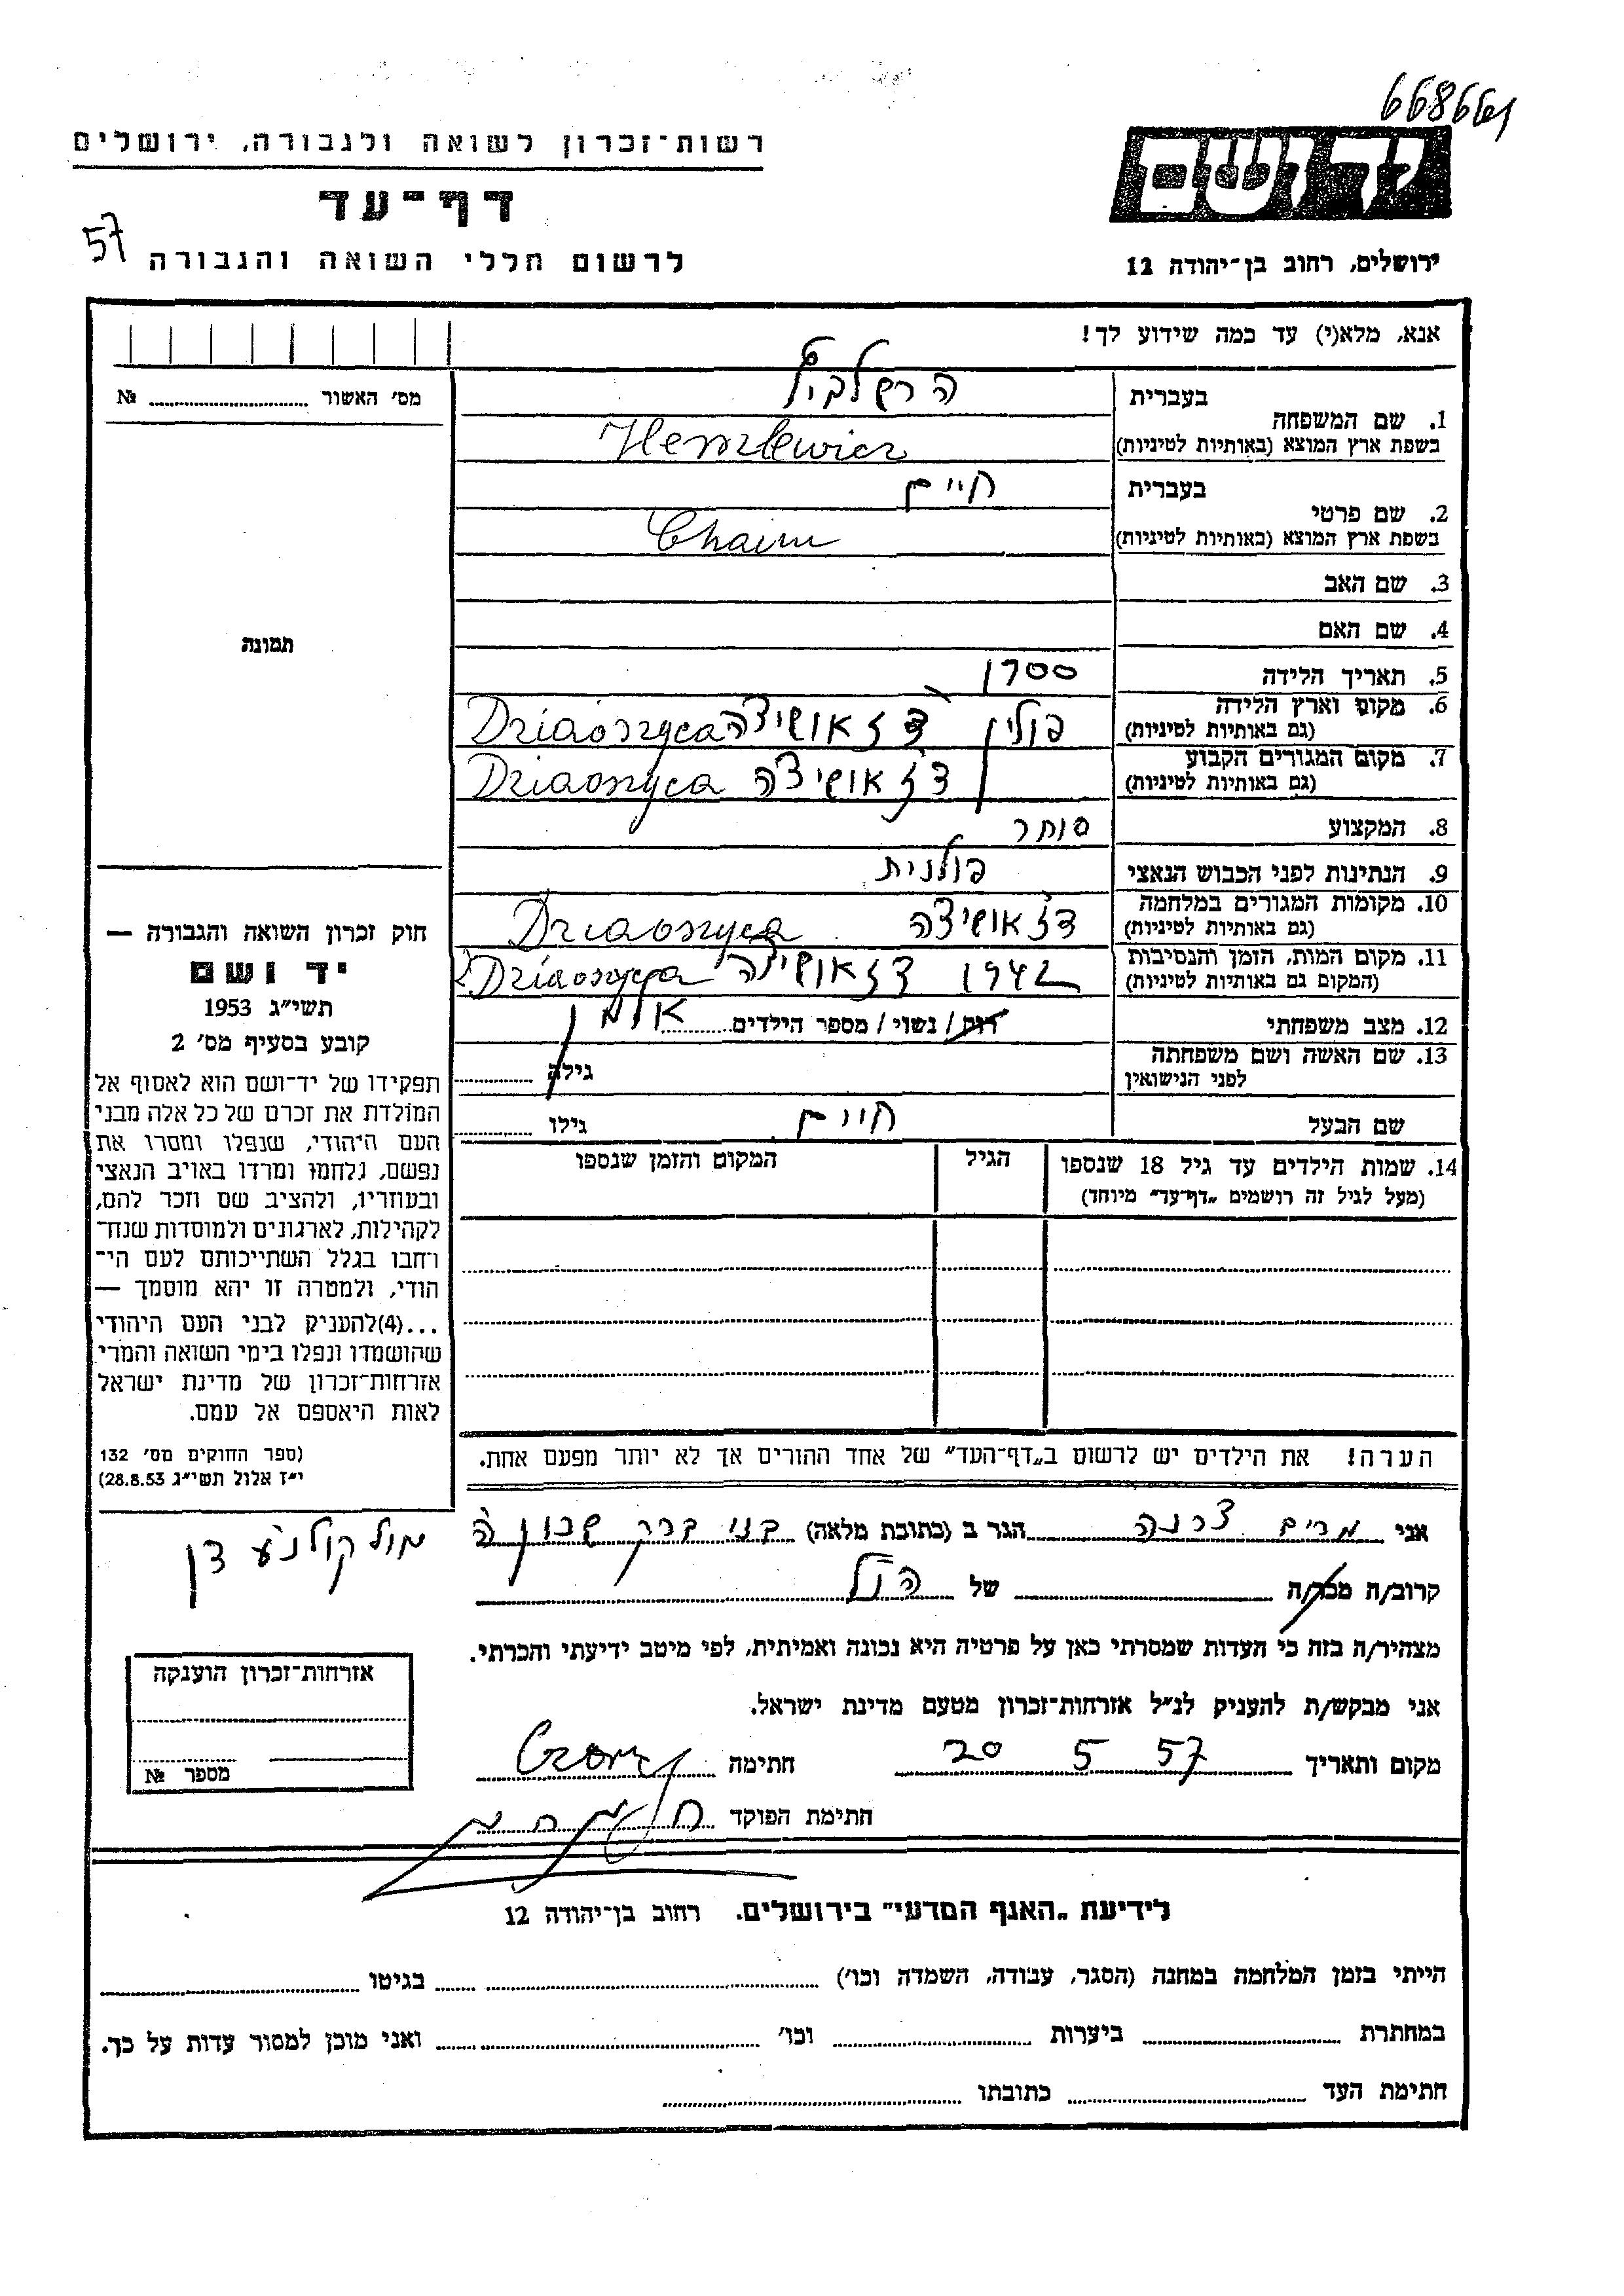 668661
רשות־זכרון לשואה ולגבורה, ירושלים
יד ושם
דף־עד
57
לרשום חללי השואה והגבורה
ירושלים, רחוב בן־יהודה 12
אנא, מלא(י) עד כמה שידוע לך!
מס׳ האשור № 
תמונה
בעברית
1. שם המשפחה
בשפת ארץ המוצא (באותיות לטיניות)
Herszlewicz
בעברית חיים
2. שם פרטי
בשפת ארץ המוצא (באותיות לטיניות)
Chaim
3. שם האב
4. שם האם
5. תאריך הלידה
6. מקום וארץ הלידה פולין דזאושיצה
(גם באותיות לטיניות)
7. מקום המגורים הקבוע דזאושיצה
(גם באותיות לטיניות)
8. המקצוע סוחר
9. הנתינות לפני הכבוש הנאצי פולנית
10. מקומות המגורים במלחמה דזאושיצה
(גם באותיות לטיניות)
11. מקום המות, הזמן והנסיבות 1942 דזאושיצה
(המקום גם באותיות לטיניות)
12. מצב משפחתי רוק / נשוי / מספר הילדים אלמן
13. שם האשה ושם משפחתה גילה
לפני הנישואין
שם הבעל חיים גילו
14. שמות הילדים עד גיל 18 שנספו הגיל המקום והזמן שנספו
(מעל לגיל זה רושמים „דף־עד״ מיוחד)
הערה! את הילדים יש לרשום ב„דף־העד״ של אחד ההורים אך לא יותר מפעם אחת.
חוק זכרון השואה והגבורה —
יד ושם
תשי״ג 1953
קובע בסעיף מס׳ 2
תפקידו של יד־ושם הוא לאסוף אל
המולדת את זכרם של כל אלה מבני
העם היהודי, שנפלו ומסרו את
נפשם, נלחמו ומרדו באויב הנאצי
ובעוזריו, ולהציב שם וזכר להם,
לקהילות, לארגונים ולמוסדות שנח־
רחבו בגלל השתייכותם לעם הי־
הודי, ולמטרה זו יהא מוסמך —
...(4)להעניק לבני העם היהודי
שהושמדו ונפלו בימי השואה והמרי
אזרחות־זכרון של מדינת ישראל
לאות היאספם אל עמם.
(ספר החוקים מס׳ 132
י״ז אלול תשי״ג 28.8.53)
אני מרים צרנה הגר ב (כתובת מלאה) בני ברק שכון ה
מול קולנע דן
קרוב/ה מכר/ה של הנ״ל
מצהיר/ה בזה כי העדות שמסרתי כאן על פרטיה היא נכונה ואמיתית, לפי מיטב ידיעתי והכרתי.
אני מבקש/ת להעניק לנ״ל אזרחות־זכרון מטעם מדינת ישראל.
מקום ותאריך 20 5 57 חתימה
חתימת הפוקד
אזרחות־זכרון הוענקה
מספר №
לידיעת „האגף המדעי״ בירושלים. רחוב בן־יהודה 12
הייתי בזמן המלחמה במחנה (הסגר, עבודה, השמדה וכו׳) בגיטו
במחתרת ביערות וכו׳ ואני מוכן למסור עדות על כך.
חתימת העד כתובתו